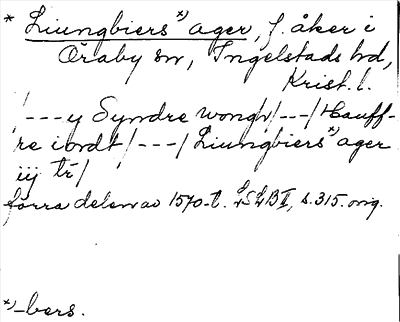 * Liungbiers*) ager, f. åker i
Öraby sn, Ingelstads hd,
Krist. l.
/---y Syndre wongh/---/Hauff-
re i ordt/---/Liungbiers*) ager
iij tr/
förra delen av 1570-t. LSLB II, s. 315. orig.
*) -bers.